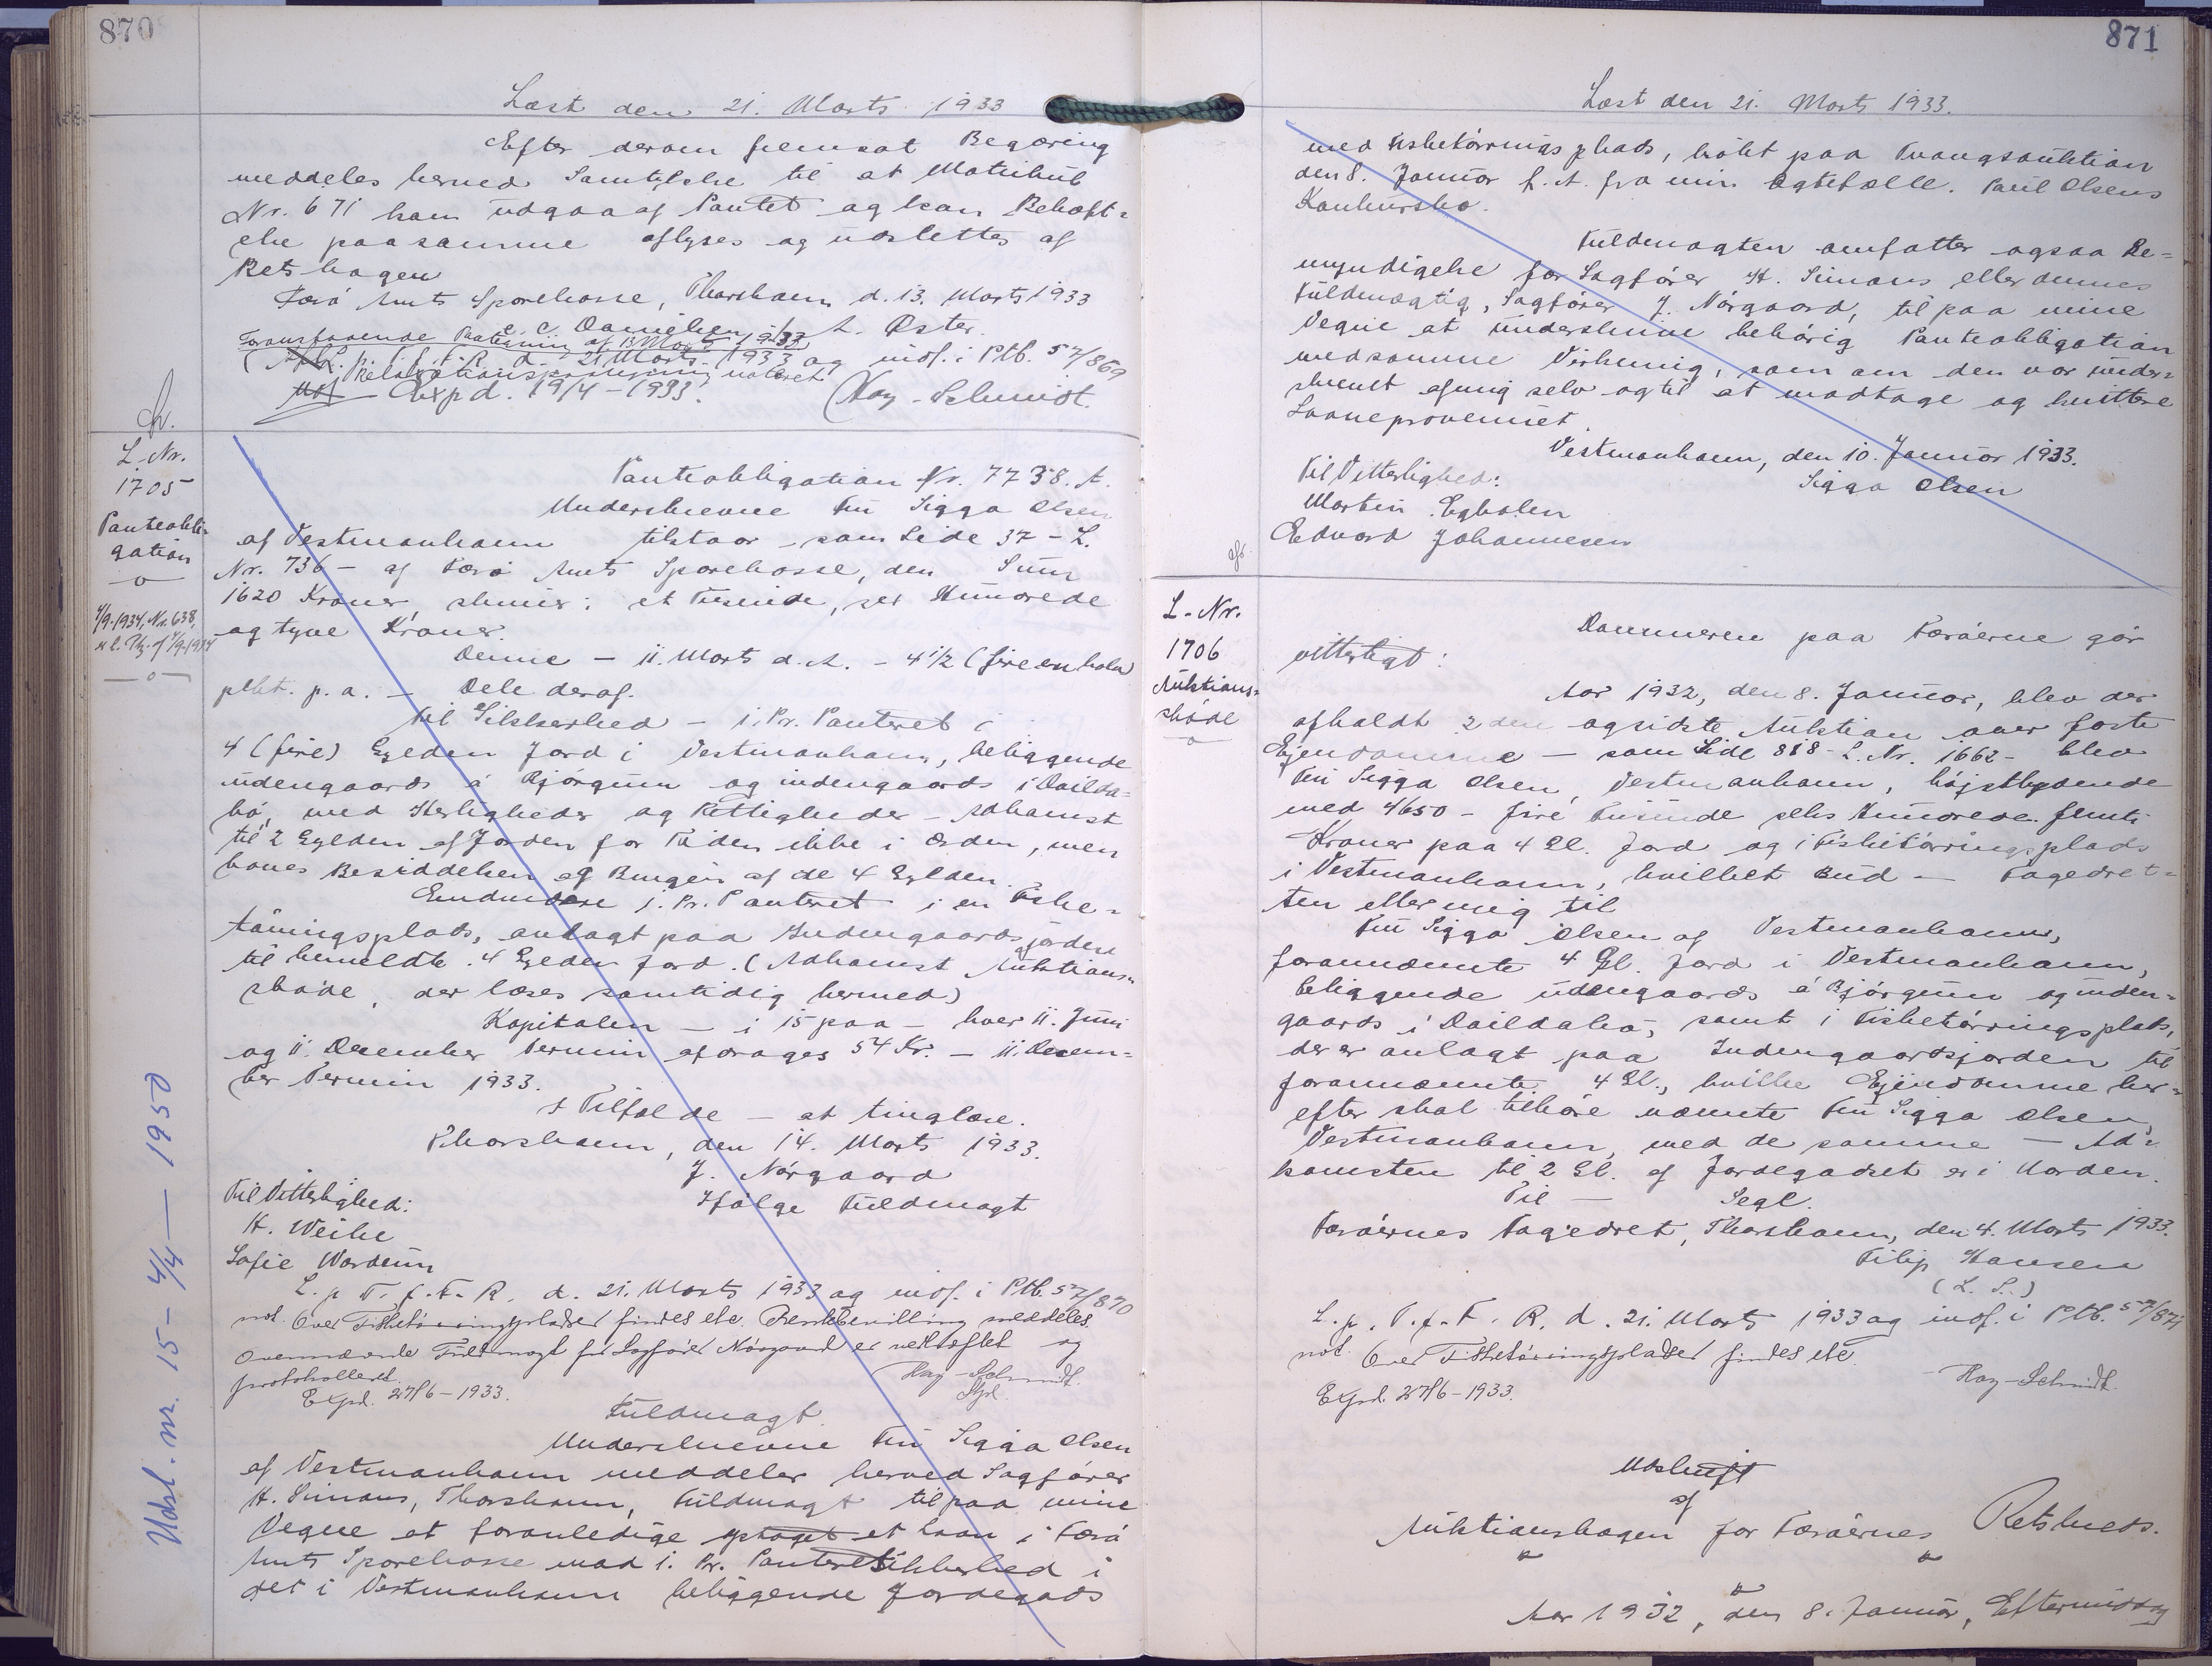 870
Læst den 21. Marts 1933
Efter derom fremsat Begæring
meddeles herved Samtykke til at Matrikul
Nr. 671 kan udgaa af Pantet og kan Behæft-
else paa samme aflyses og udslettes af
Retsbogen
Færø Amts Sparekasse, Thorshavn d. 13. Marts 1933
C. C. Danielsen / L. Øster.
Foranstaaende Paategning af 13 Marts 1933
L. p. T. f. F. R. d. 21 Marts 1933 og indf. i Ptb. 57/869
Relaxationspaategning noteret
Expd. 19/4-1933.
Kay-Schmidt.
L. Nr.
1705
Panteobli-
gation
4/9-1934, Nr. 638,
Udsl. nr. 15 - 4/4 - 1950
Panteobligation Nr. 7738. A.
Underskrevne Fru Sigga Olsen
af Vestmanhavn tilstaar - som Side 37 - L.
Nr. 736 - af Færø Amts Sparekasse, den Sum
1620 Kroner, skriver: et Tusinde, sex Hundrede
og tyve Kroner.
Denne - 11. Marts d. A. - 4 1/2 (fire en halv)
pCt. p. a. - Dele deraf.
Til Sikkerhed - 1. Pr. Panteret i
4 (fire) Gylden Jord i Vestmanhavn, beliggende
udengaards á Bjørgum og indengaards i Dailda-
bø, med Herligheder og Rettigheder - Adkomst
til 2 Gylden af Jorden for Tiden ikke i Orden, men
haves Besiddelsen og Brugen af de 4 Gylden.
Endvidere 1. Pr. Panteret i en Fiske-
tørringsplads, anlagt paa Indengaardsjorden
til bemeldte 4 Gylden Jord. (Adkomst Auktions-
skøde, der læses samtidig hermed)
Kapitalen - i 15 paa - hver 11. Juni
og 11. December Termin afdrages 54 Kr. - 11. Decem-
ber Termin 1933.
I Tilfælde - at tinglæse.
Thorshavn, den 14. Marts 1933.
J. Nørgaard
Ifølge Fuldmagt
Til Vitterlighed:
H. Weihe
Sofie Wardum
L. p. T. f. F. R. d. 21. Marts 1933 og indf. i Ptb. 57/870
not. Over Fisketørringspladsen findes ete.
Ovennævnte Fuldmagt for Sagfører Nørgaard er vedhæftet og
protokolleret.
Kay-Schmidt.
Expd. 27/6-1933.
Fuldmagt.
Underskrevne Fru Sigga Olsen
af Vestmanhavn meddeler herved Sagfører
H. Simans, Thorshavn, Fuldmagt til paa mine
Vegne at foranledige optaget et Laan i Færø
Amts Sparekasse mod 1. Pr. Panteret Sikkerhed i
det i Vestmanhavn beliggende Jordegods
871
Læst den 21. Marts 1933.
med Fisketørringsplads, købt paa Tvangsauktion
den 8. Januar f. A. fra min Ægtefælle. Paul Olsens
Konkursbo.
Fuldmagten omfatter ogsaa Be-
myndigelse for Sagfører H. Simans eller dennes
Fuldmægtig, Sagfører J. Nørgaard, til paa mine
Vegne at underskrive behørig Panteobligation
med samme Virkning, som om den var under-
skrevet af mig selv og til at modtage og kvittere
Laaneprovenuet.
Vestmanhavn, den 10. Januar 1933.
Til Vitterlighed:
Sigga Olsen
Martin Egholm
Edvard Johannesen
L. Nr.
1706
Auktions-
skøde
Dommeren paa Færøerne gør
vitterligt:
Aar 1932, den 8. Januar, blev der
afholdt 2den og sidste Auktion over faste
Ejendomme - som Side 818 - L. Nr. 1662 - blev
Fru Sigga Olsen, Vestmanhavn, højstbydende
med 4650 - fire Tusinde seks Hundrede femti
Kroner paa 4 Gl. Jord og 1 Fisketørringsplads
i Vestmanhavn, hvilket Bud - Fogedret-
ten eller mig til
Fru Sigga Olsen af Vestmanhavn,
forannævnte 4 Gl. Jord i Vestmanhavn,
beliggende udengaards á Bjørgum og inden-
gaards i Daildabø, samt 1 Fisketørringsplads,
der er anlagt paa Indengaardsjorden til
forannævnte 4 Gl., hvilke Ejendomme her-
efter skal tilhøre nævnte Fru Sigga Olsen,
Vestmanhavn, med de samme - Ad-
komsten til 2 Gl. af Jordegodset er i Uorden.
Til - Segl.
Færøernes Fogedret, Thorshavn, den 4. Marts 1933.
Filip Hansen
(L. S.)
L. p. T. f. F. R. d. 21. Marts 1933 og indf. i Ptb. 57/871
not. Over Fisketørringspladsen findes ete
Kay-Schmidt.
Expd. 27/6-1933.
Udskrift
af
Auktionsbogen for Færøernes Retskreds.
Aar 1932, den 8. Januar, Eftermiddag